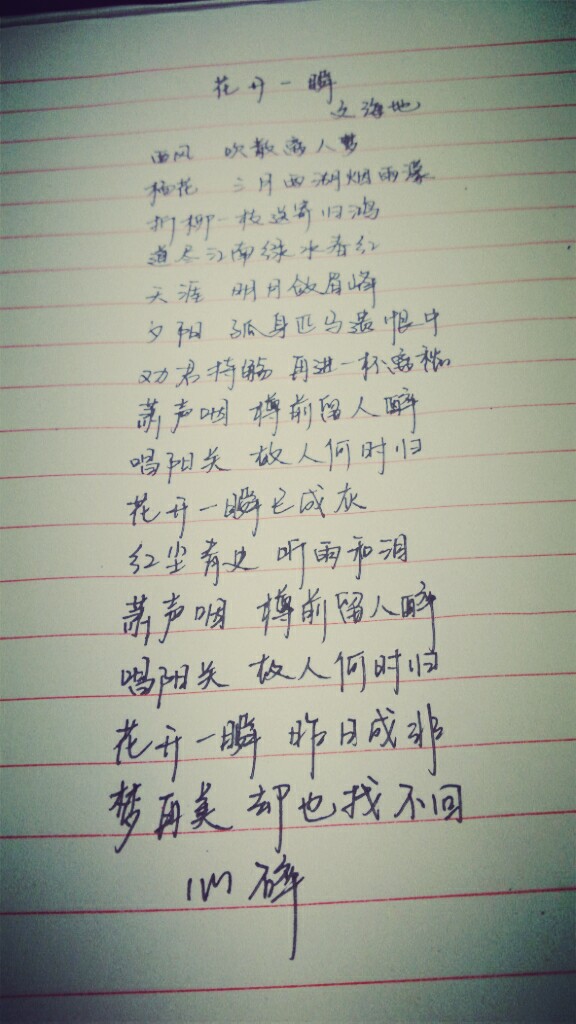 花开一瞬
文海地
西风 吹散离人梦
桃花 三月西湖烟雨濛
折柳一枝送寄归鸿
道尽江南绿水春红
天涯 明月敛眉峰
夕阳 孤身匹马遗恨中
劝君持觞 再进一杯离
萧声咽 樽前留人醉
唱阳关 故人何时归
花开一瞬已成灰
红尘青史 听雨和泪
萧声咽 樽前留人醉
唱阳关 故人何时归
花开一瞬 昨日成非
梦再美 却也找不回
心碎